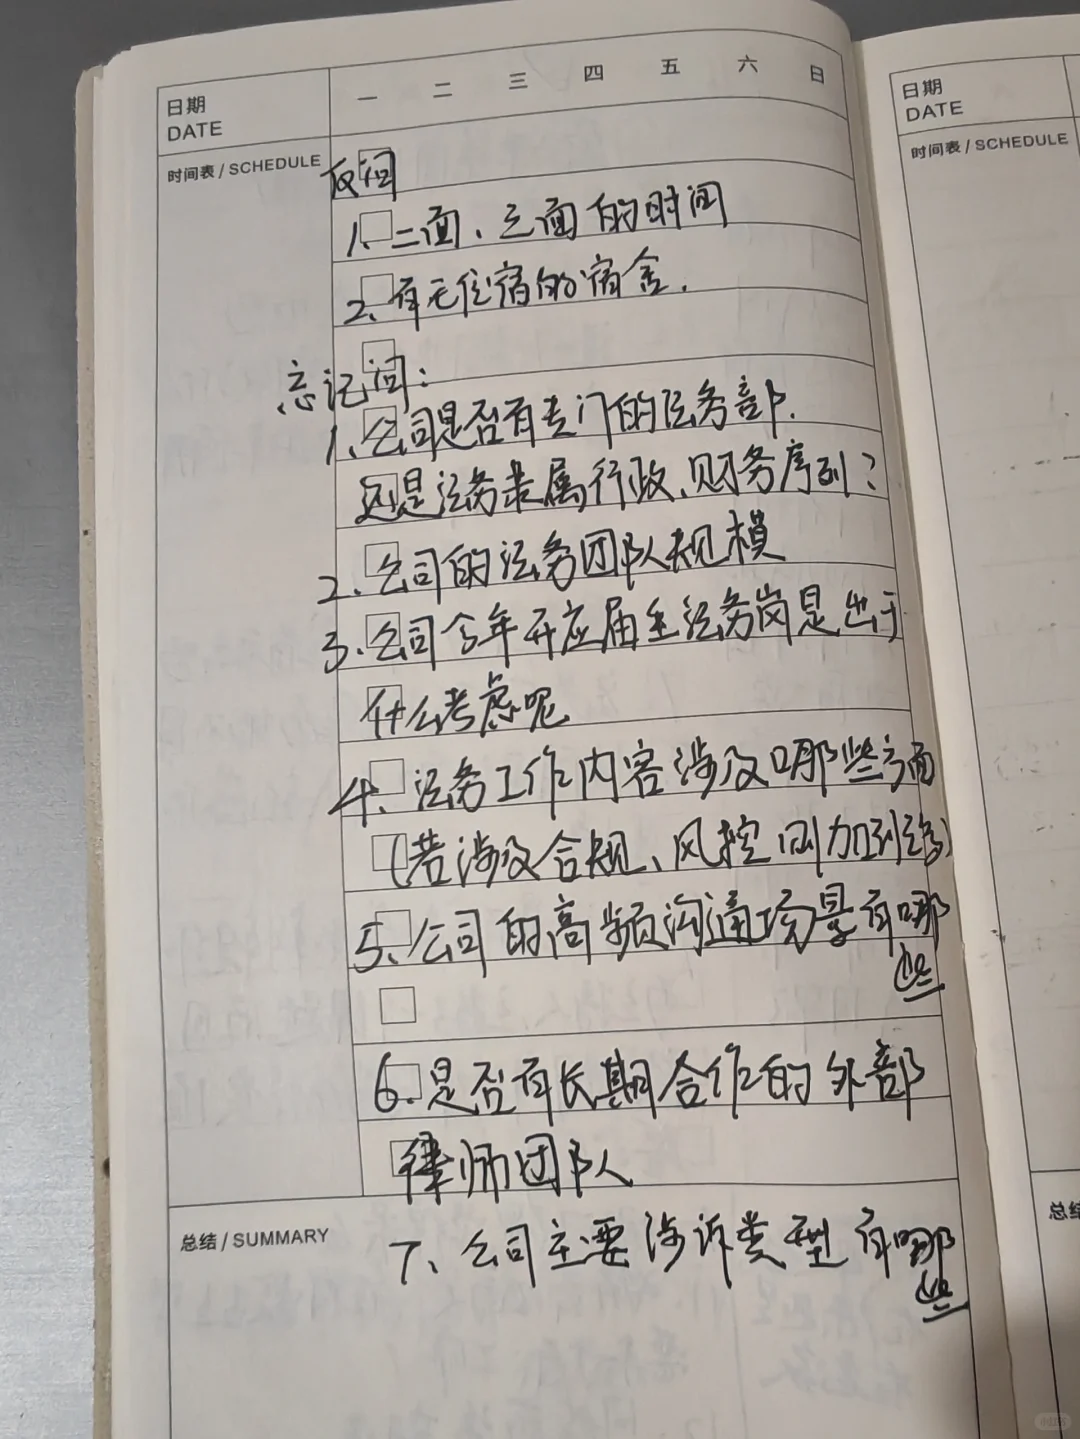 日期
DATE
一 二 三 四 五 六 日
时间表 / SCHEDULE
反问
1、二面、三面的时间
2、有无住宿的宿舍.
忘记问：
1、公司是否有专门的法务部.
还是法务隶属行政、财务序列？
2、公司的法务团队规模
3、公司今年开应届生法务岗是出于
什么考虑呢
4、法务工作内容涉及哪些方面
(若涉及合规、风控则加到)
5、公司的高频沟通场景有哪
些
6、是否有长期合作的外部
律师团队
总结 / SUMMARY
7、公司主要涉诉类型有哪
些
日期
DATE
时间表 / SCHEDULE
总结